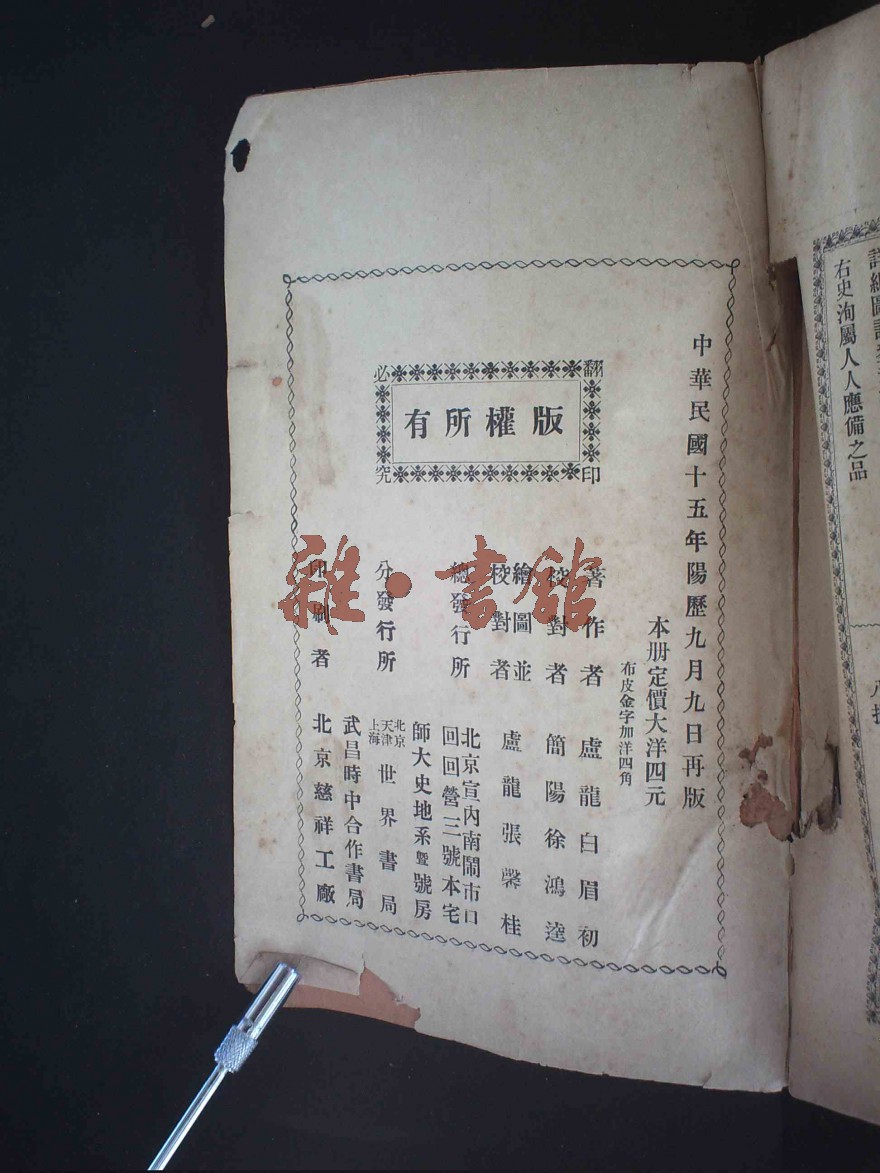 中華民國十五年陽歷九月九日再版
本册定價大洋四元
布皮金字加洋四角
翻印必究
版權所有
著作者 盧龍白眉初
校對者 簡陽徐鴻逵
繪圖並校對者 盧龍張馨桂
總發行所 北京宣內南鬧市口回回營三號本宅
分發行所 師大史地系暨號房
北京天津上海世界書局
武昌時中合作書局
印刷者 北京慈祥工廠
雜·書館
右史洵屬人人應備之品